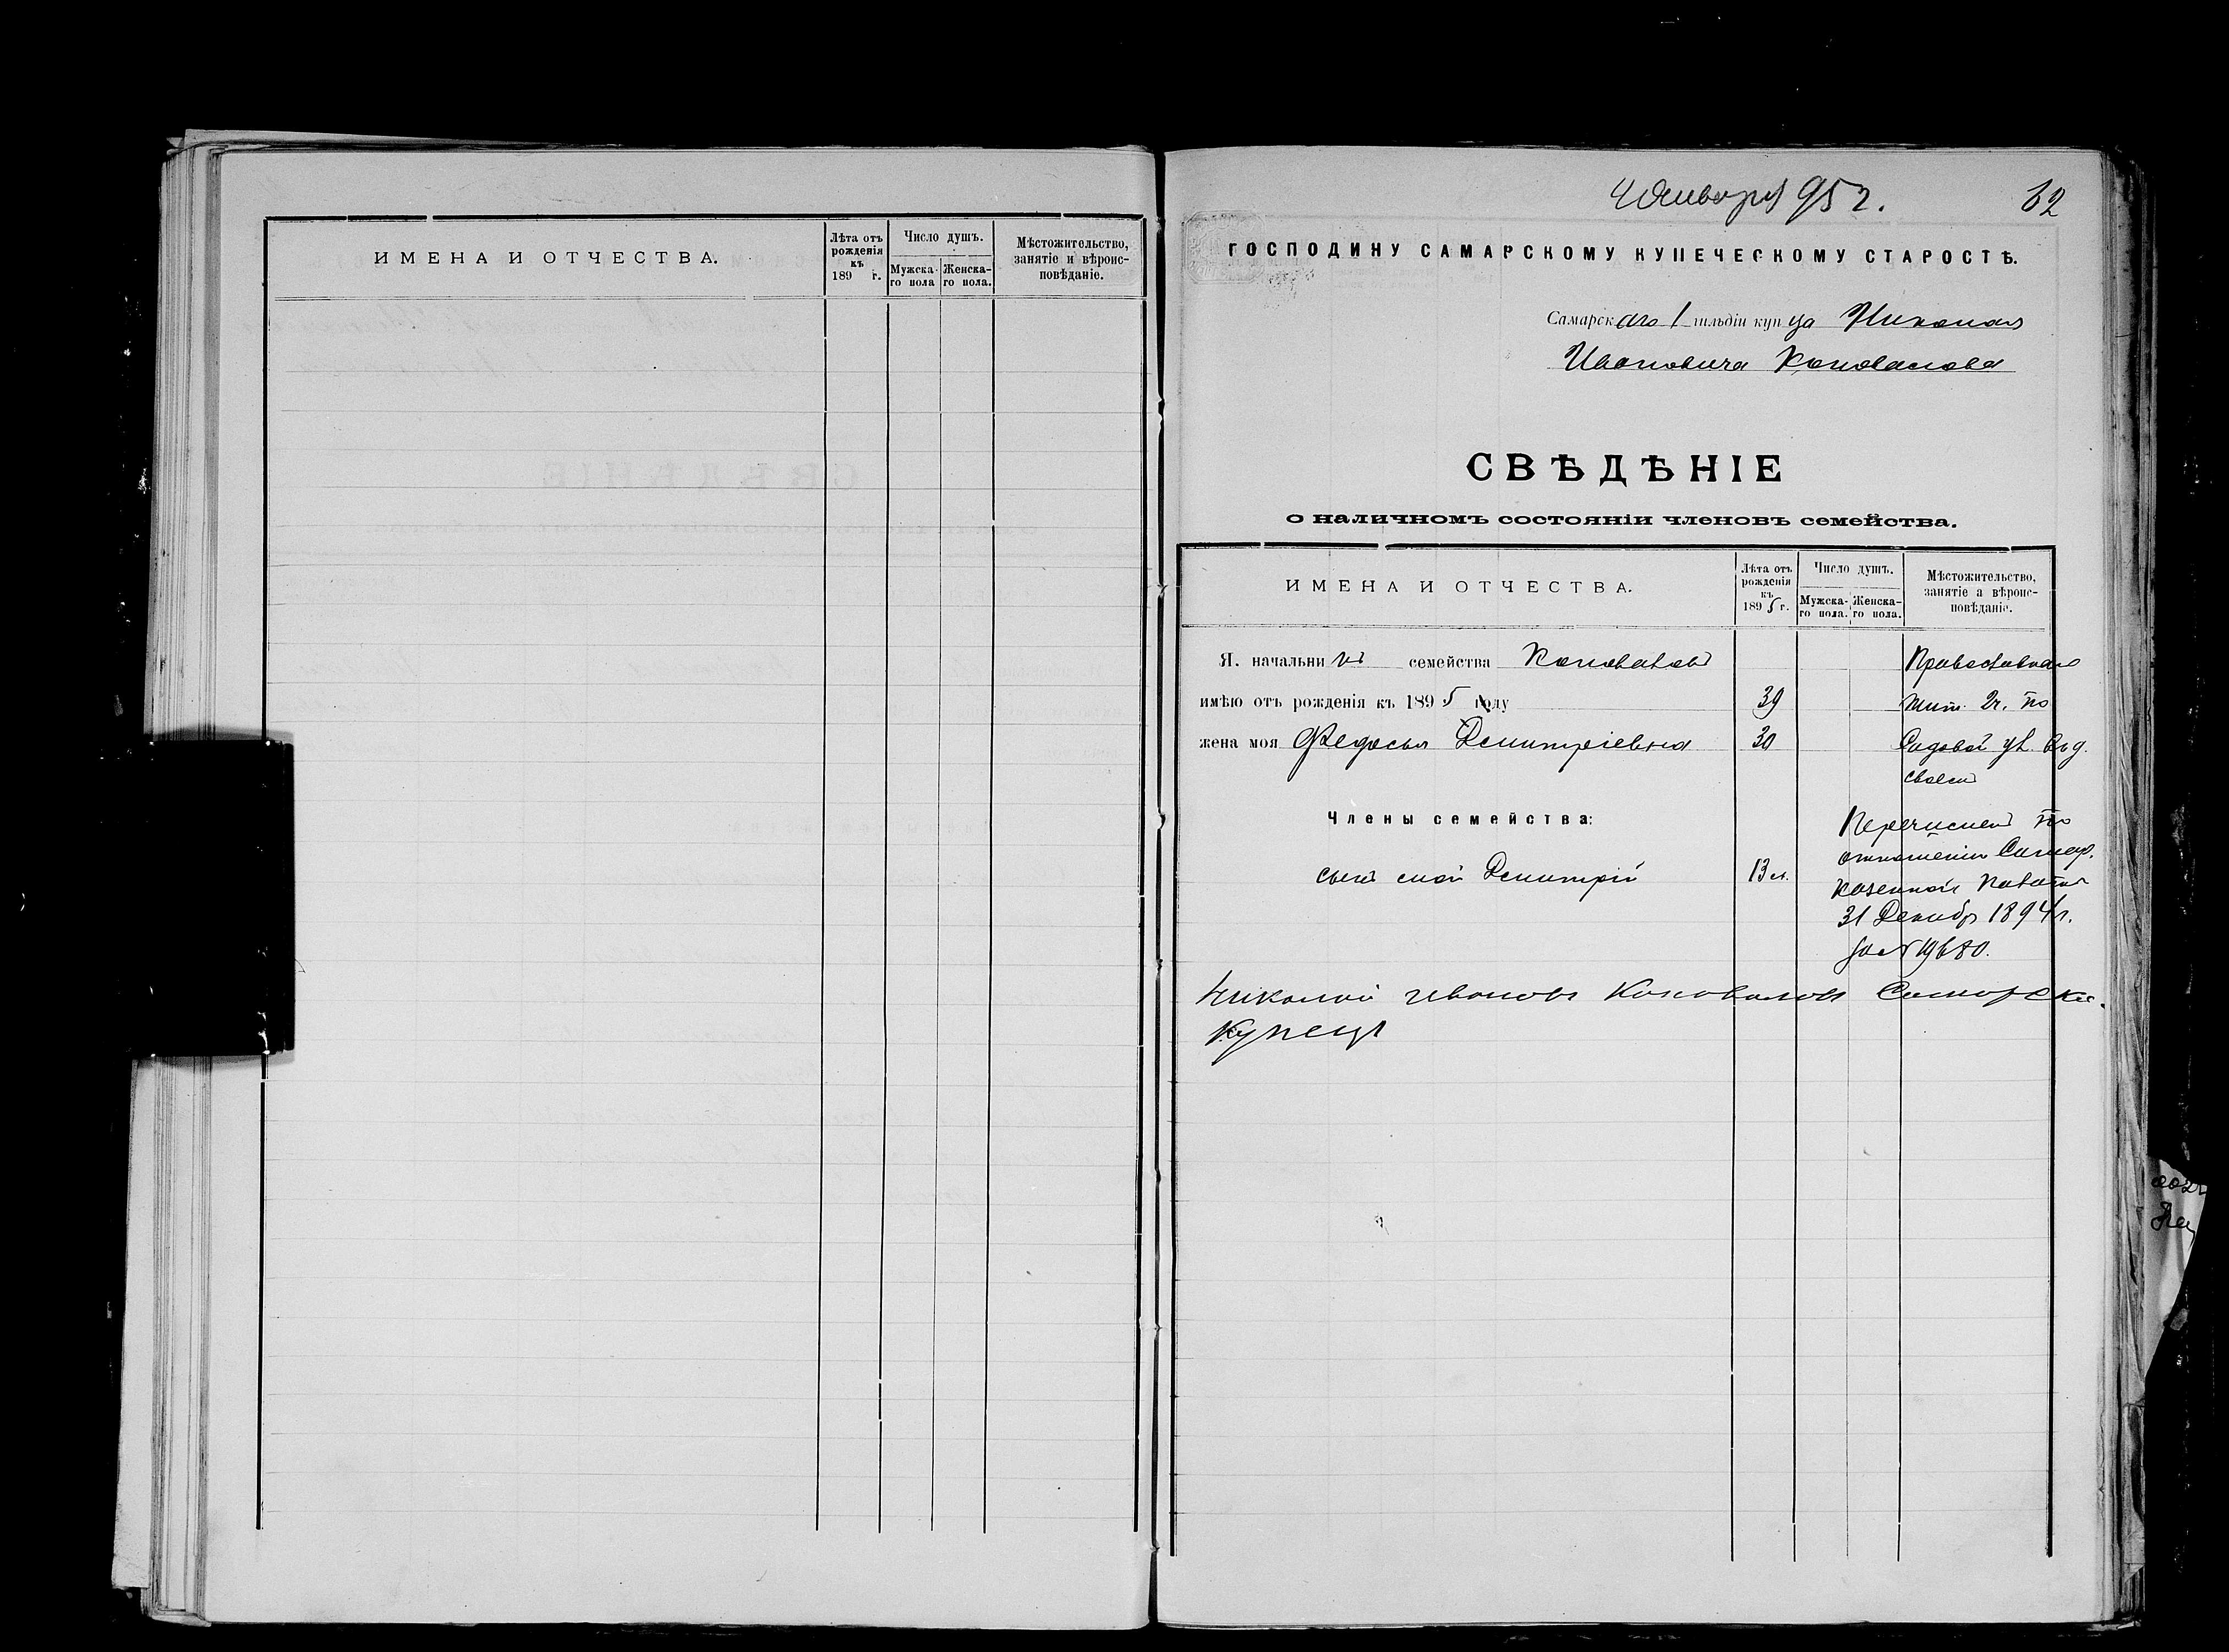 ИМЕНА И ОТЧЕСТВА.
Лѣта отъ рожденія къ 189 г.
Число душъ.
Мужска-го пола
Женска-го пола.
Мѣстожительство, занятіе и вѣроис-повѣданіе.
4 Января 95 г.
62
ГОСПОДИНУ САМАРСКОМУ КУПЕЧЕСКОМУ СТАРОСТѢ.
Самарскаго 1 гильдіи купца Николая
Ивановича Коновалова
СВѢДѢНІЕ
о наличномъ состояніи членовъ семейства.
ИМЕНА И ОТЧЕСТВА.
Лѣта отъ рожденія къ 1895 г.
Число душъ.
Мужска-го пола.
Женска-го пола.
Мѣстожительство, занятіе а вѣроис-повѣданіе.
Я. начальникъ семейства Коноваловъ Православнаго
имѣю отъ рожденія къ 1895 году 39 жит. 2 ч. по
жена моя Федосья Дмитріевна 30 Садовой ул. въ д.
своемъ
Члены семейства:
Перечисленъ по
отношенію Самар.
сынъ мой Дмитрій 13 л.
казенной палаты
31 Декабр 1894 г.
за № 19680.
Николай Ивановъ Коноваловъ Самарски.
Купецъ